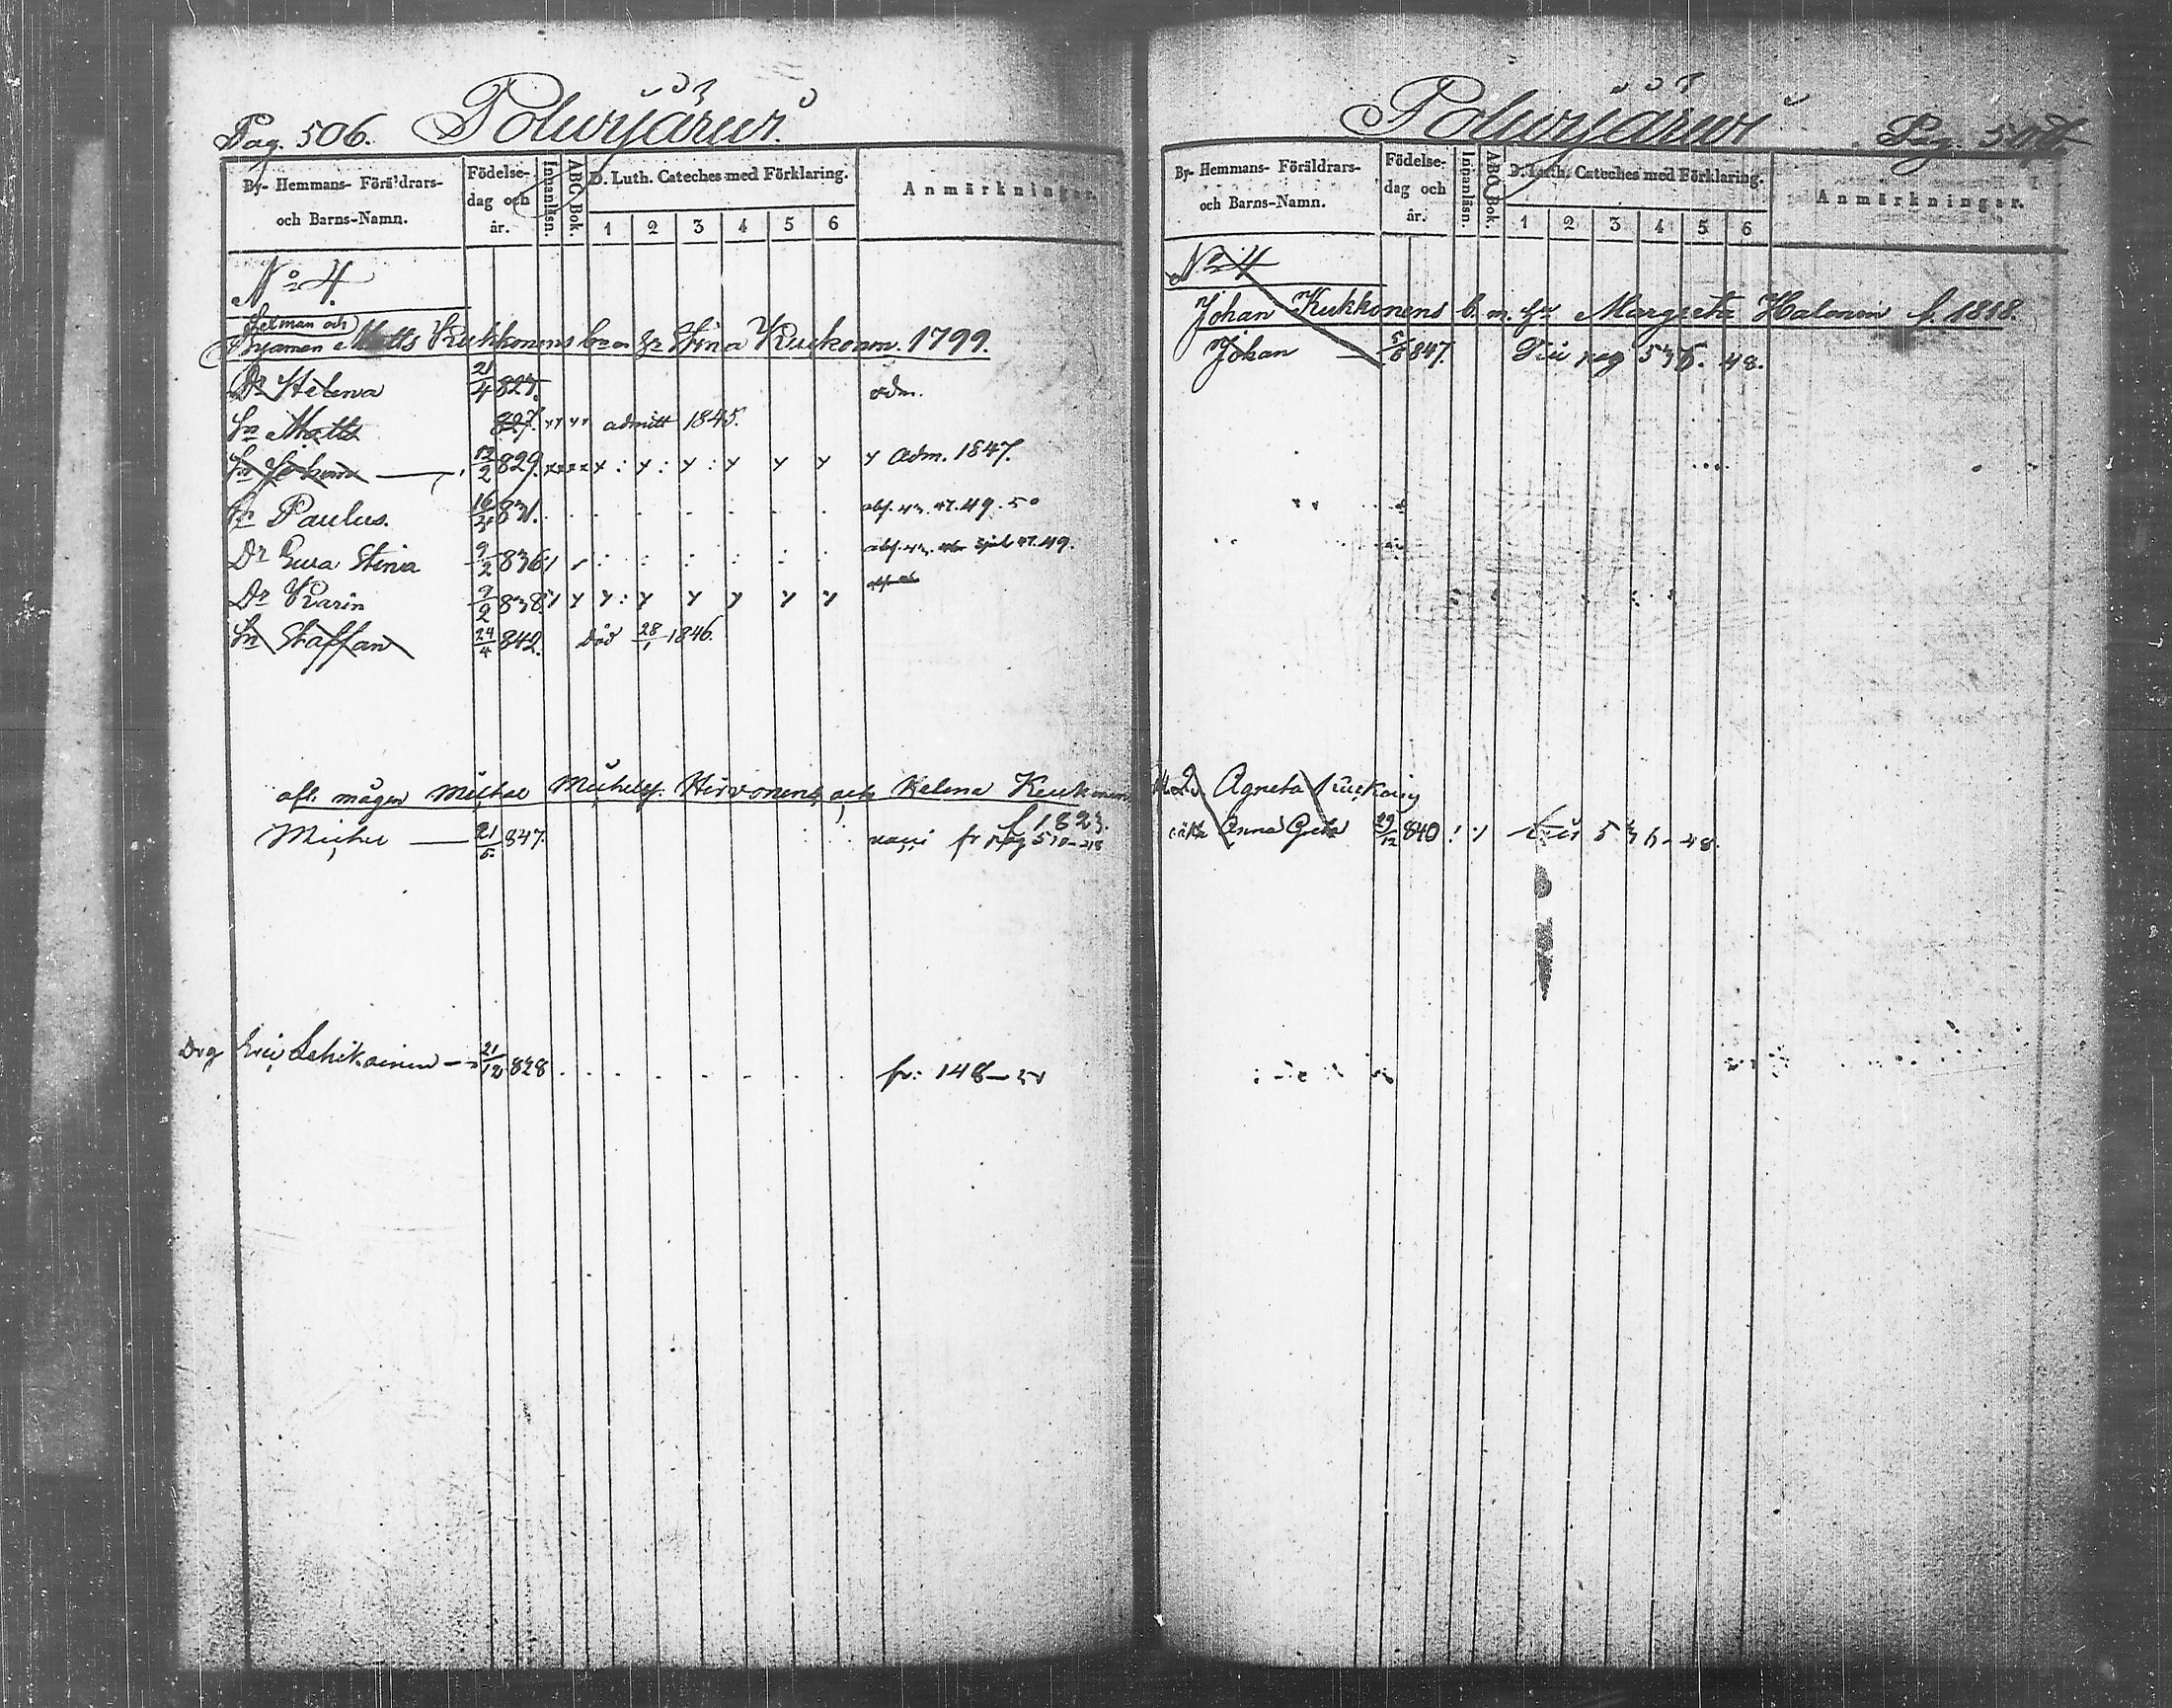 Pag. 506. Polwijärwi.
By- Hemmans- Föräldrars- och Barns-Namn.
Födelse-dag och år.
Innanläsn.
ABC Bok.
D. Luth. Cateches med Förklaring.
1 2 3 4 5 6
Anmärkningar.
No 4.
Matts Kukkonens barn Hu Stina Kuckonen. 1799.
Dr Helena 21/4 827. adm.
Sn Matts 827. admitt 1845.
Sn Johan 12/2 829. adm. 1847.
Sn Paulus. 16/4 831. abs. 49. 50
Dr Ewa Stina 9/2 836
Dr Karin 9/2 838
Sn Staffan 24/4 842. död 28/1 1846.
afl. mågen Michel Michelss. Hirvonens och Helena Keukonen
f 1823.
Michel 21/5 847. fr pag
Drg Eric Lehikoinen 21/12 828 fr: 148
Polwijärwi Pag. 507.
By- Hemmans- Föräldrars- och Barns-Namn.
Födelse-dag och år.
Innanläsn.
ABC Bok.
D. Luth. Cateches med Förklaring.
1 2 3 4 5 6
Anmärkningar.
No 4
Johan Kukkonens b. m. Hu Margreta Halonen f. 1818.
Johan 5/8 847. pag 536. 48.
Agneta
Anna Greta 29/12 840 536-48.